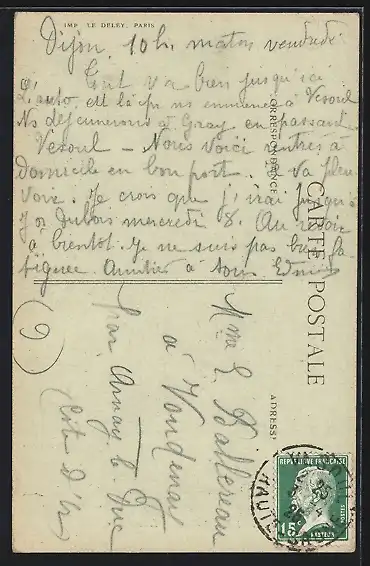 IMP. LE DELEY, PARIS
Dijon 10h. matin vendredi
Tout va bien jusqu'ici
L'auto est là pr ns emmener à Vesoul
Ns déjeunerons à Gray en passant
Vesoul – Nous voici rentrés à
domicile en bon port. va pleu
voir. Je crois que j'irai jusqu'à
mercredi 8. Au revoir
à bientôt. Je ne suis pas bien fa
tiguée. Amitiés à tous
CORRESPONDANCE
CARTE POSTALE
ADRESSE
(9)
Mme L. Ballereau
à Voudenay
par Arnay le Duc
Côte d'Or
REPUBLIQUE FRANÇAISE
15c
PASTEUR
POSTES